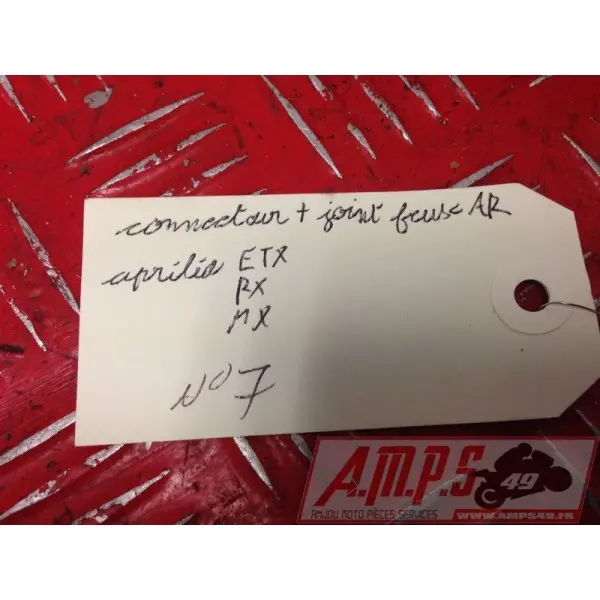 connecteur + joint feux AR
aprilia ETX
RX
MX
N°7
A.M.P.S 49
ANJOU MOTO PIÈCES SERVICES
WWW.AMPS49.FR